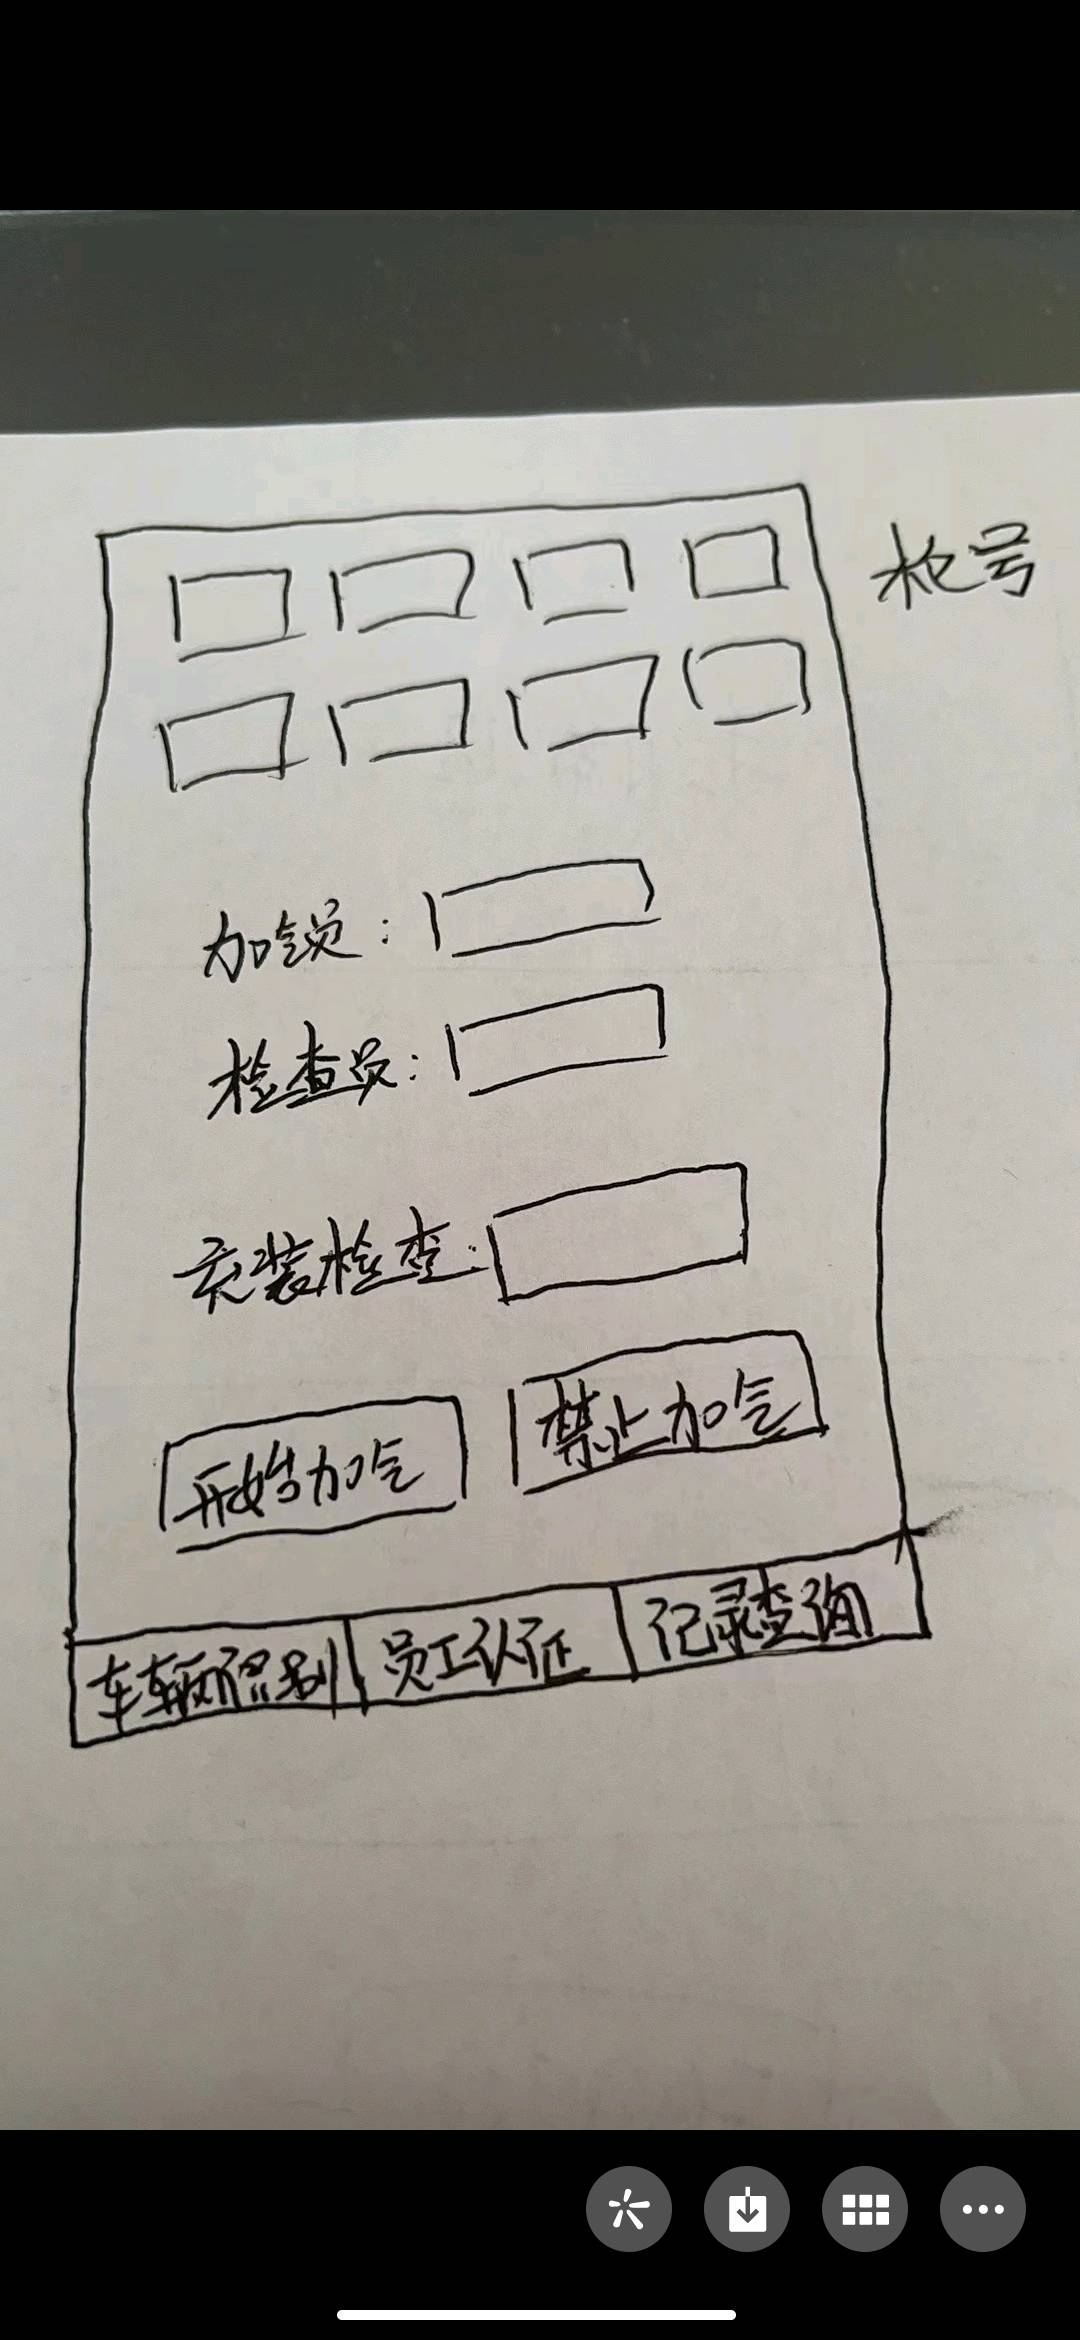 枪号
加气员：
检查员：
安装检查：
开始加气
禁止加气
车辆识别
员工认证
记录查询